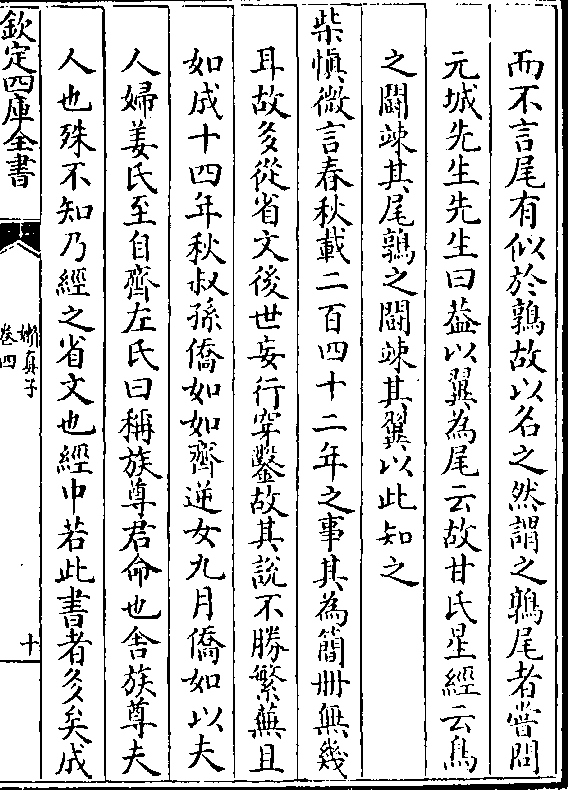 而不言尾有似於鶉故以名之然謂之鶉尾者嘗問
元城先生先生曰葢以翼為尾云故甘氏星經云鳥
之鬬竦其尾鶉之鬬竦其翼以此知之
柴慎微言春秋載二百四十二年之事其為簡冊無幾
耳故多從省文後世妄行穿鑿故其說不勝繁蕪且
如成十四年秋叔孫僑如如齊逆女九月僑如以夫
人婦姜氏至自齊左氏曰稱族尊君命也舍族尊夫
人也殊不知乃經之省文也經中若此書者多矣成
欽定四庫全書
嬾真子
卷四
十